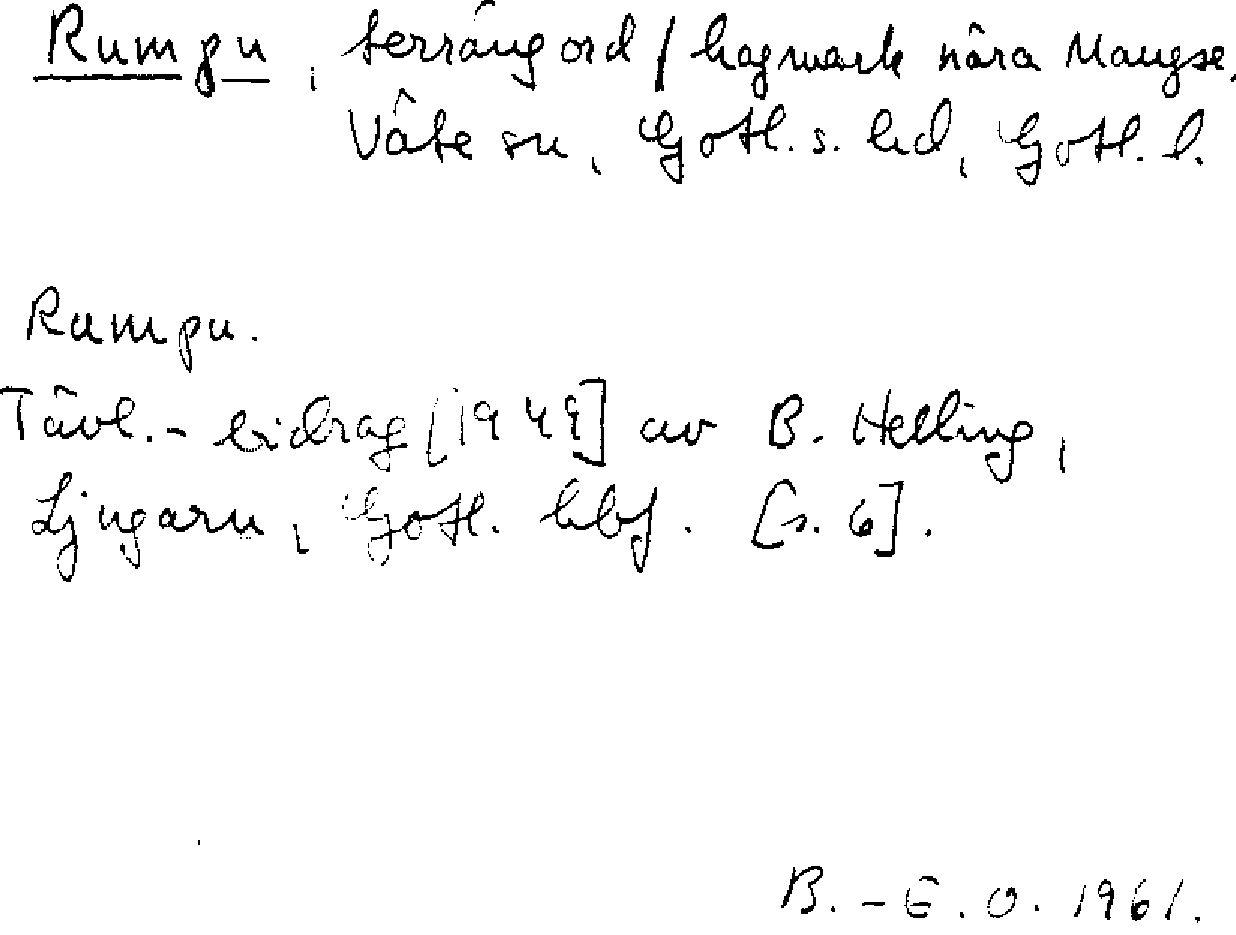 Rumpu, terrängord / hagmark nära Mangse,
Väte sn, Gotl. s. hd, Gotl. l.
Rumpu.
Tävl.-bidrag [1949] av B. Helling,
Ljugarn, Gotl. hbf. [s. 6].
B.-E. O. 1961.